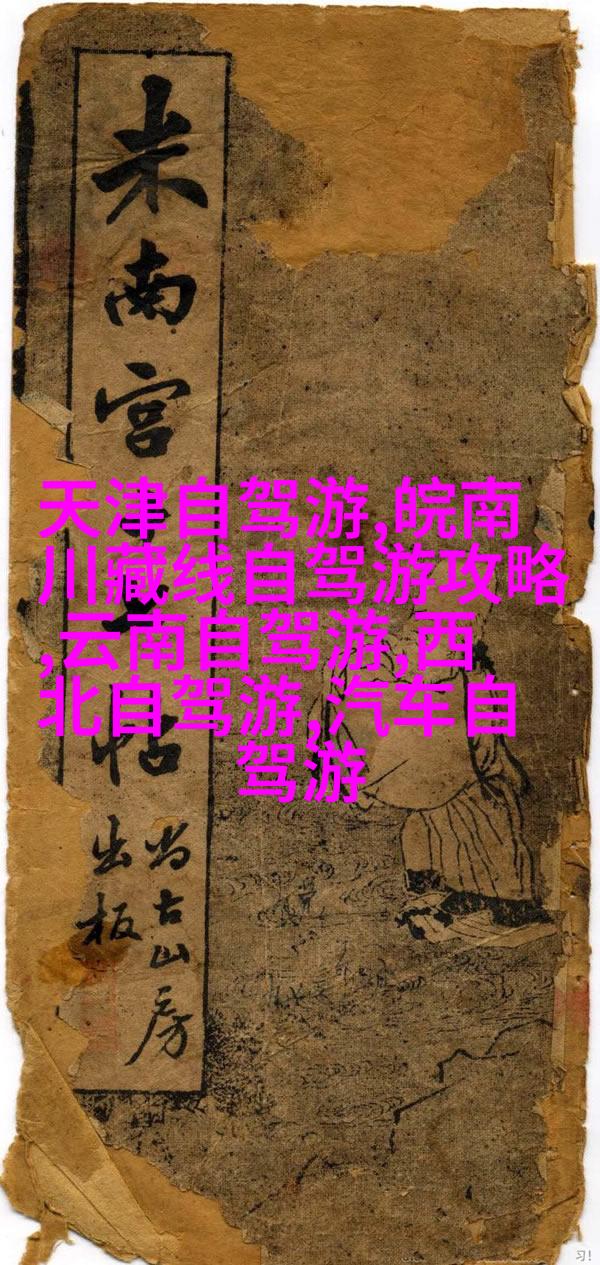 米南宫
帖
尚古山房
出板
天津自驾游,皖南
川藏线自驾游攻略
,云南自驾游,西
北自驾游,汽车自
驾游
习!